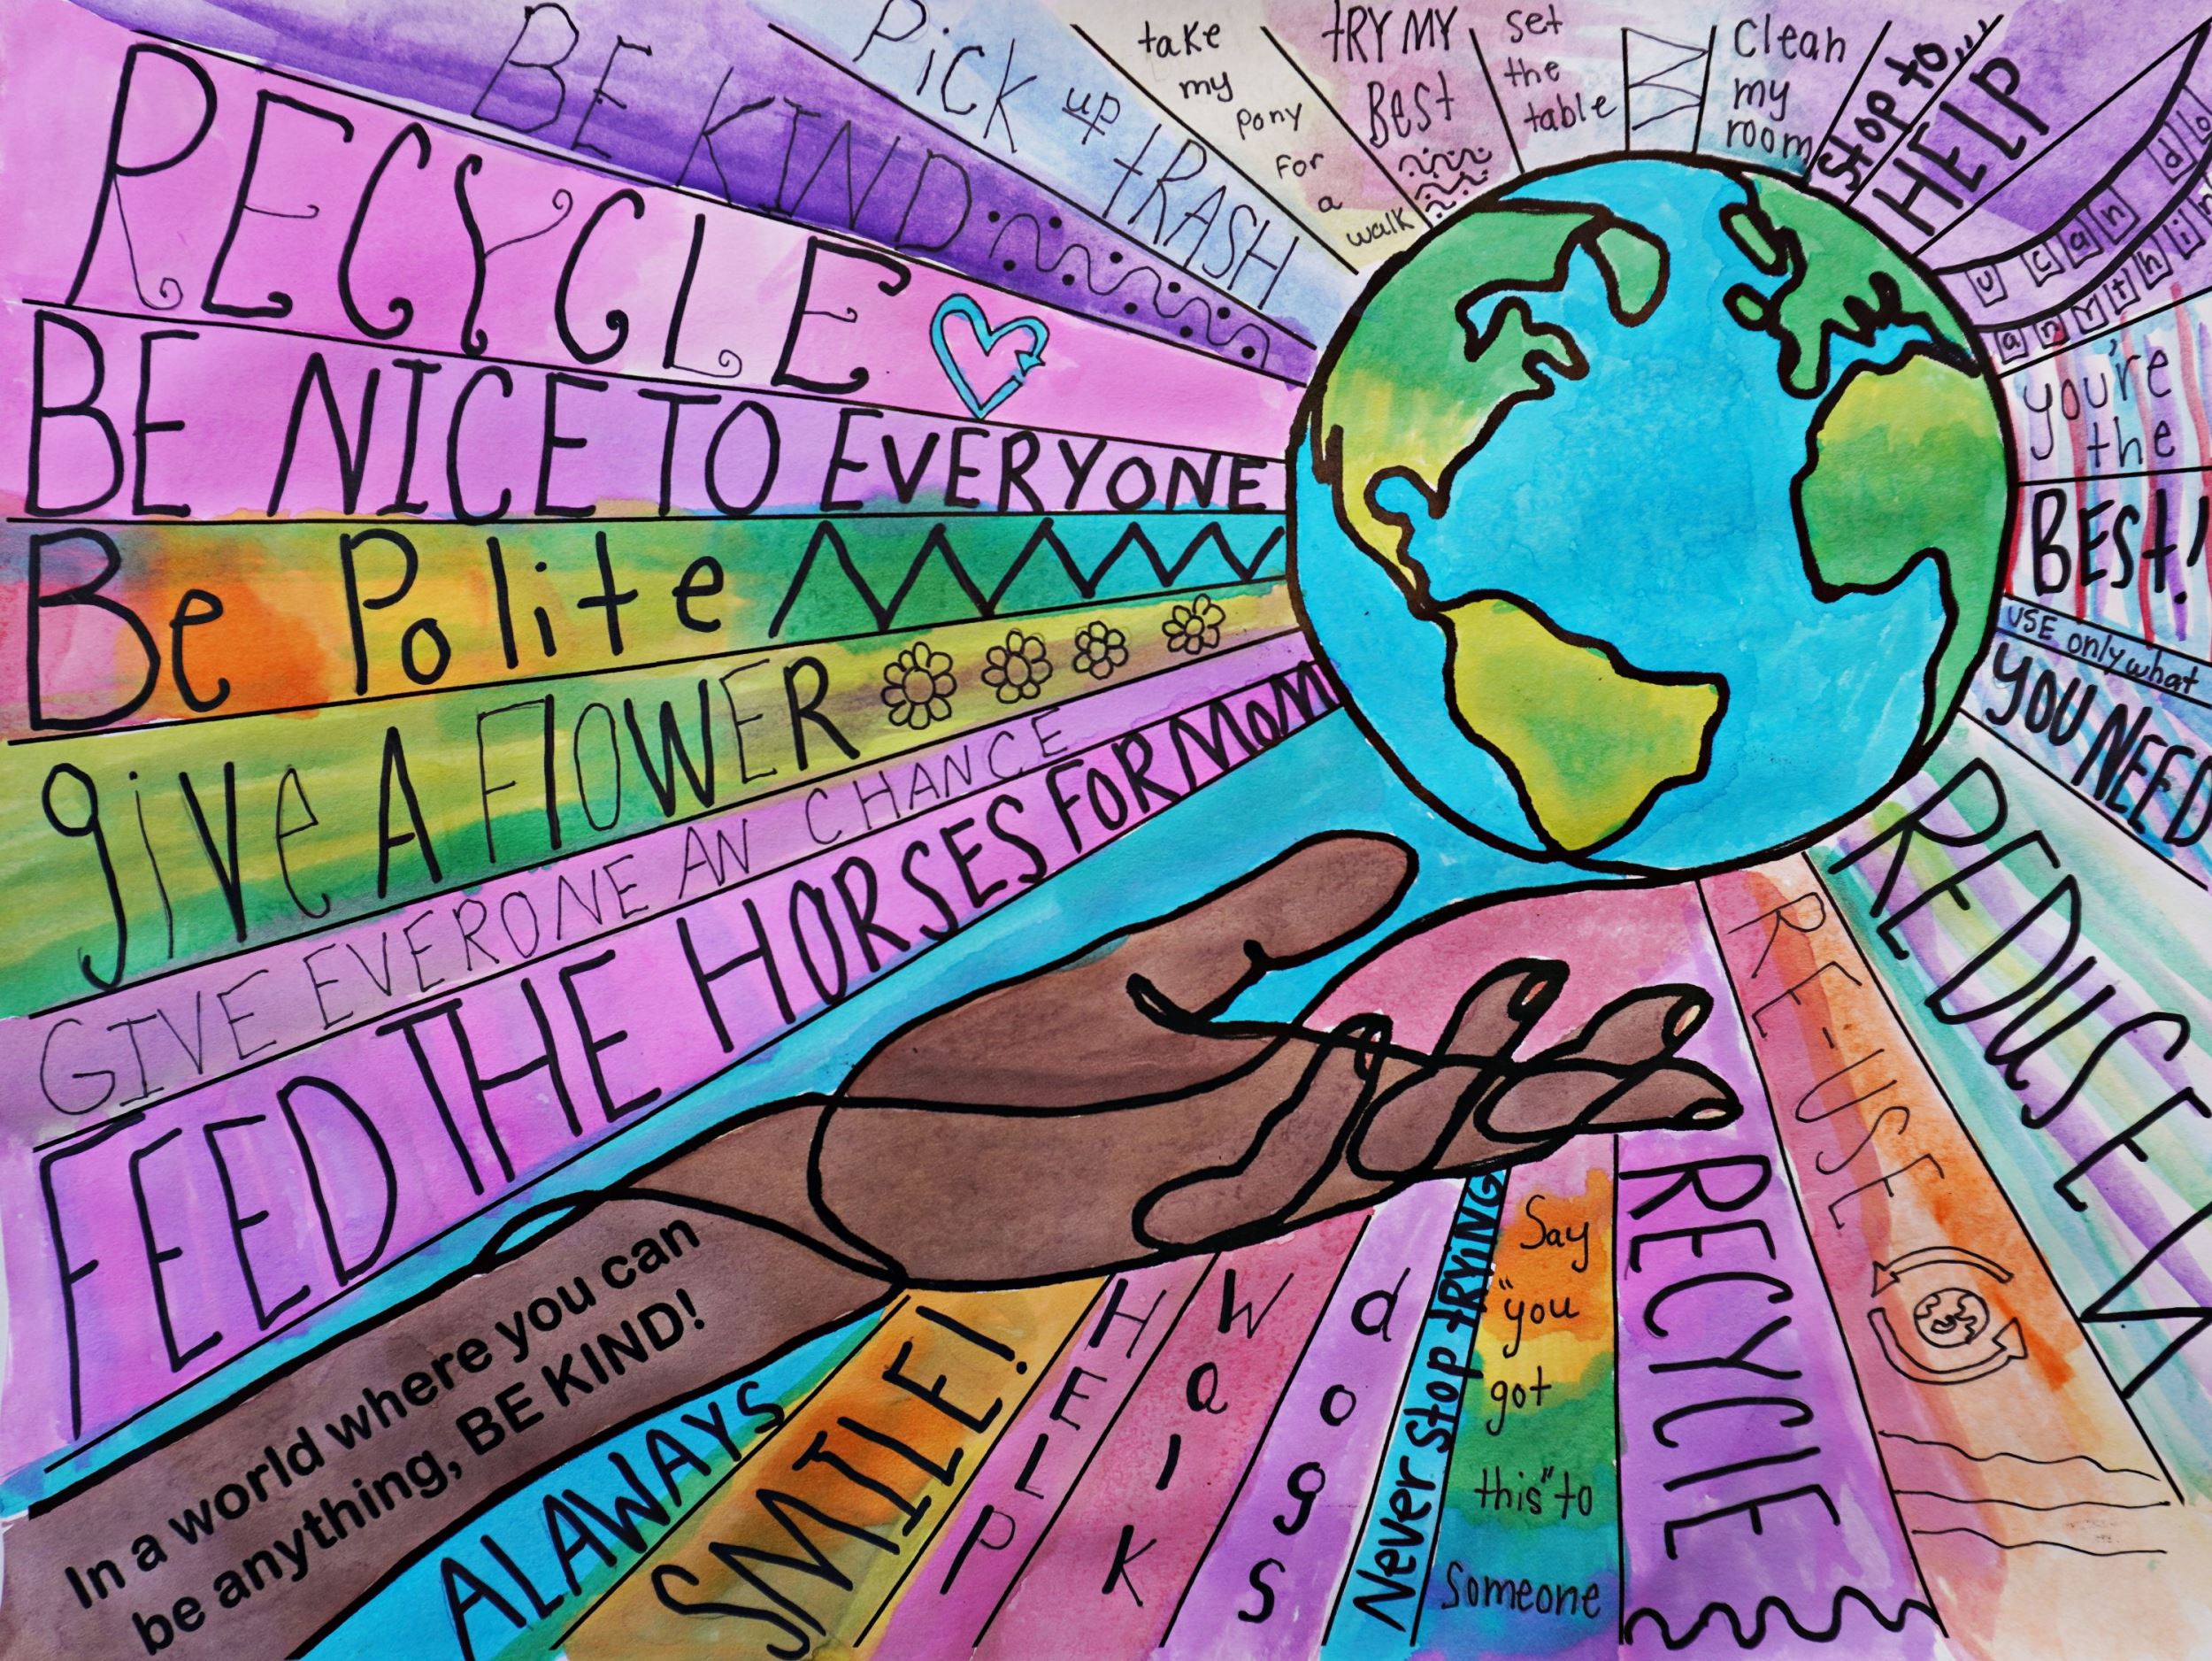 RECYCLE
BE KIND
Pick up tRASH
take
my
pony
For
a
walk
tRY MY
BESt
set
the
table
clean
my
room
Stop to...
HELP
u can do
anythin
you're
the
BESt!
USE only what
YOU NEED
REDUSE
RE-USE
RECYClE
Say
"you
got
this" to
Someone
Never stop tRYING
dogs
WalK
HElP
SMILE!
ALAWAYS
BE NICE TO EVERYONE
Be Polite
give A FlOWER
GIVE EVERONE AN CHANCE
FEED THE HORSES FOR MOM
In a world where you can
be anything, BE KIND!